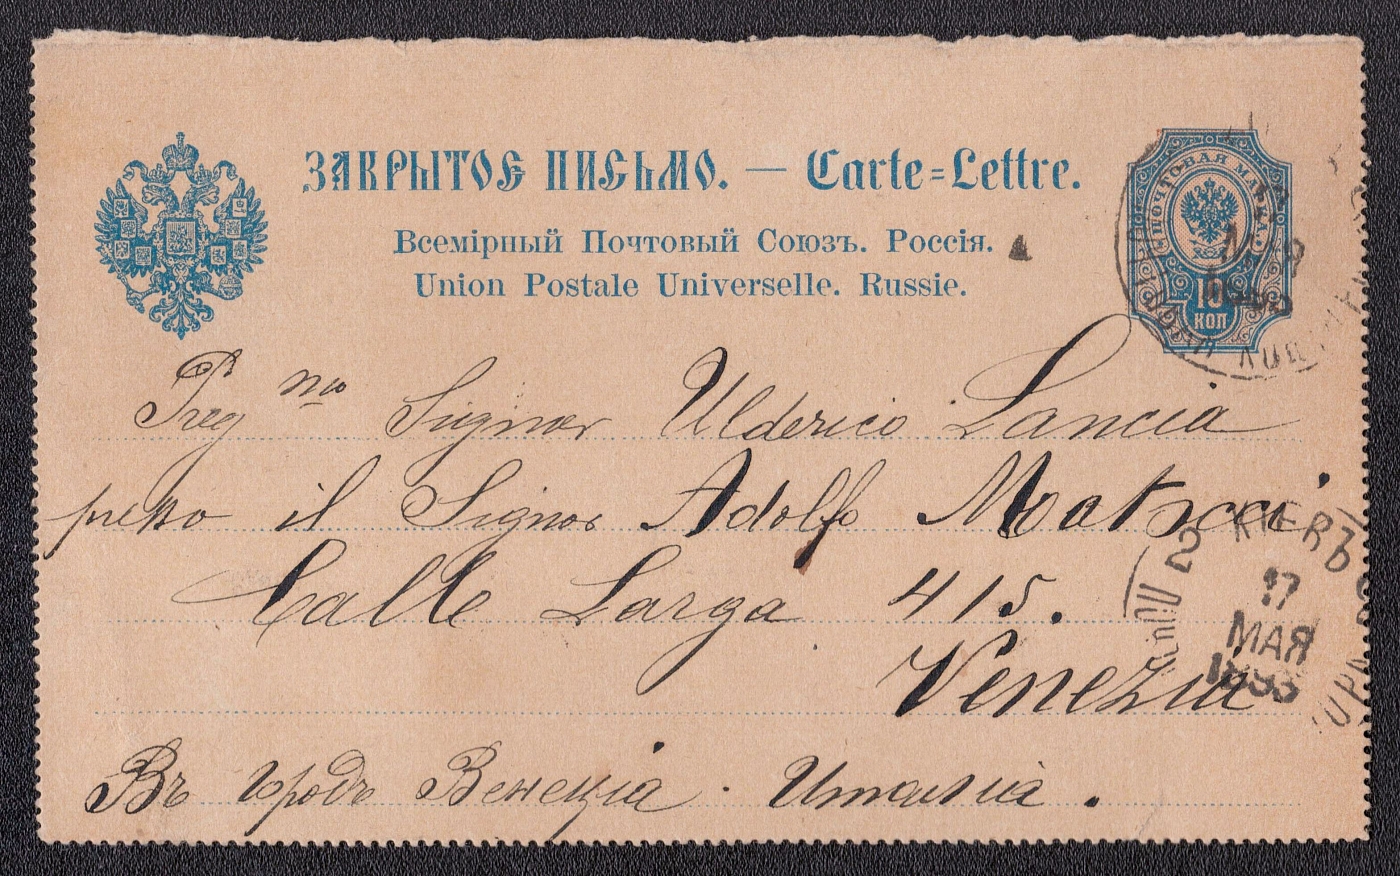 ЗАКРЫТОЕ ПИСЬМО. — Carte=Lettre.
Всемірный Почтовый Союзъ. Россія.
Union Postale Universelle. Russie.
ПОЧТОВАЯ МАРКА.
10
КОП
Preg mo Signor Ulderico Lancia
presso il Signor Adolfo
Calle Larga 415.
Venezia
Въ городъ Венеція. Италія.
2 КІЕВЪ
17
МАЯ
1893